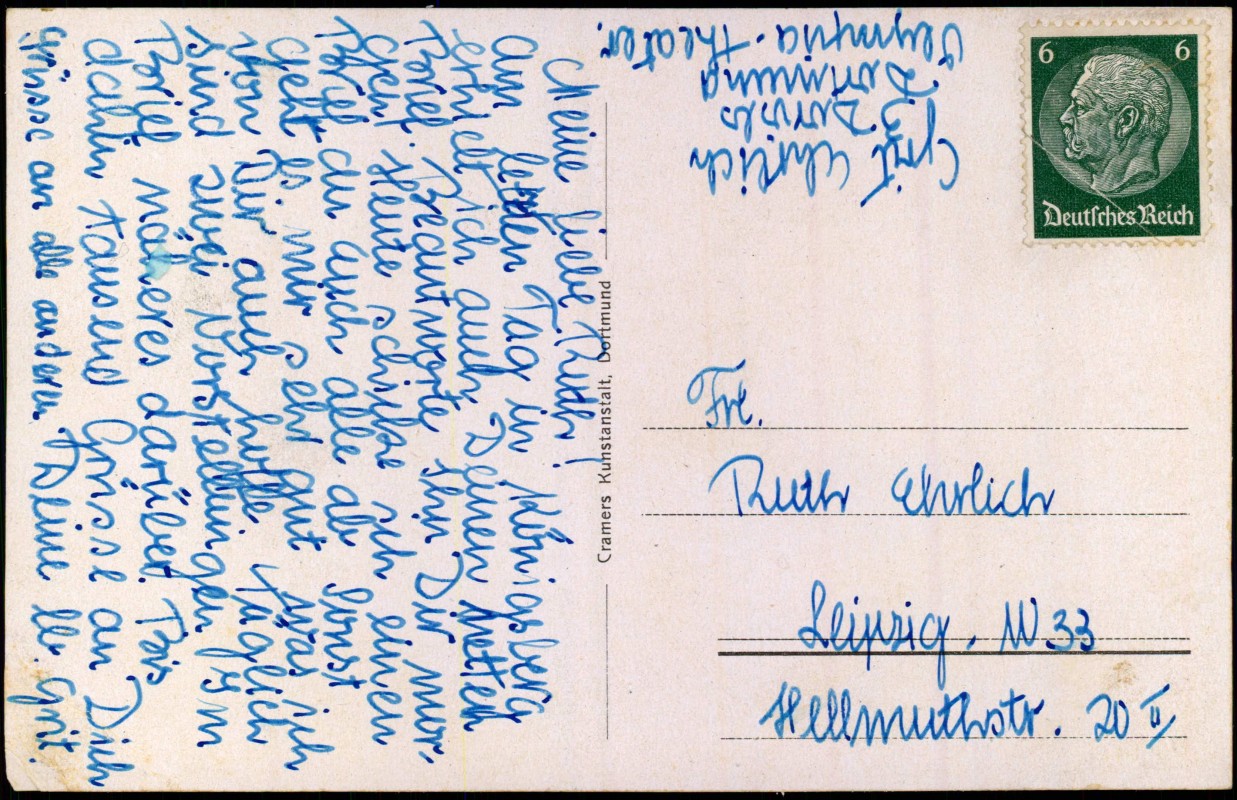 Meine liebe Ruth!
Am letzten Tag in Königsberg
erhielt ich auch Deinen netten
Brief. Beantworte ihn Dir mor-
gen. Heute schicke ich einen
Brief an Euch alle ab. Sonst
geht es mir sehr gut was ich
von Dir auch hoffe. Täglich
sind zwei Vorstellungen. Im
Brief näheres darüber. Bis
dahin tausend Grüsse an Dich
grüsse an alle anderen. Deine lb. Grit.
Cramers Kunstanstalt, Dortmund
Grit Ehrlich
Dortmund
Olympia-Theater.
6 6
Deutsches Reich
Frl.
Ruth Ehrlich
Leipzig. W.33
Hellmuthstr. 20 II